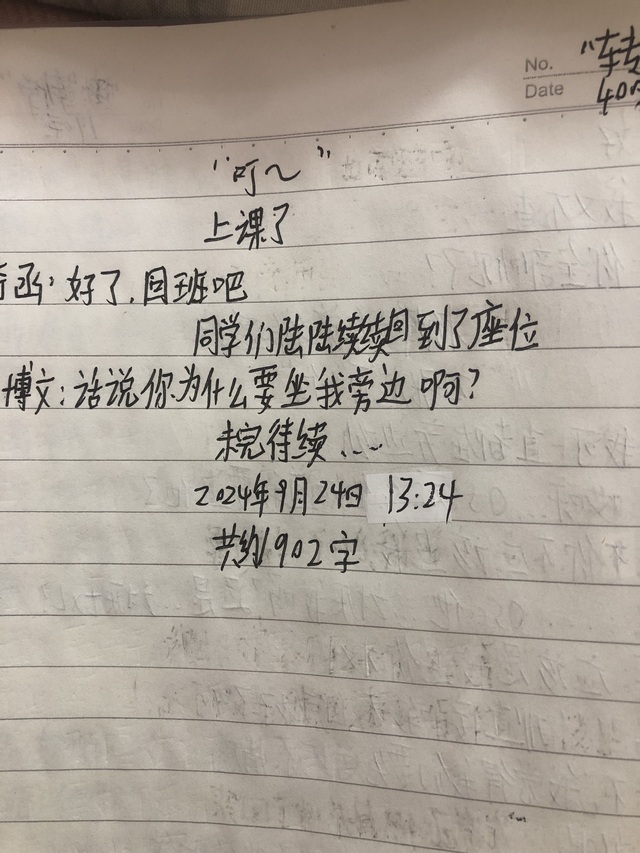 No.
Date
"叮~"
上课了
函:好了,回班吧
同学们陆陆续续回到了座位
博文:话说你为什么要坐我旁边啊?
未完待续...
2024年9月24日 13:24
共约902字